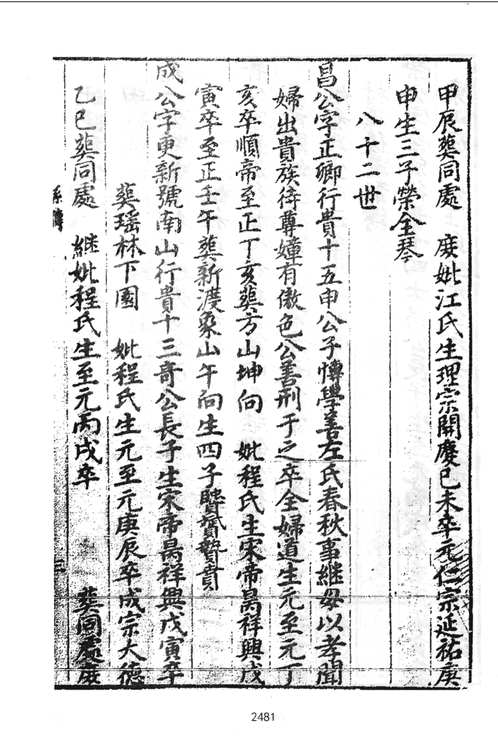 甲辰葬同處　庶妣江氏生理宗開慶己未卒元仁宗延祐庚
申生三子榮全琴
八十二世
昌公字正卿行貴十五申公子博學善左氏春秋事繼母以孝聞
婦出貴族待尊嫜有傲色公善刑于之卒全婦道生元至元丁
亥卒順帝至正丁亥葬方山坤向　妣程氏生宋帝昺祥興戊
寅卒至正壬午葬新渡象山午向生四子贇斌贄貴
成公字更新號南山行貴十三奇公長子生宋帝昺祥興戊寅卒
葬瑶林下園　妣程氏生元至元庚辰卒成宗大德
乙巳葬同處　繼妣程氏生至元丙戌卒　葬同處庶
2481